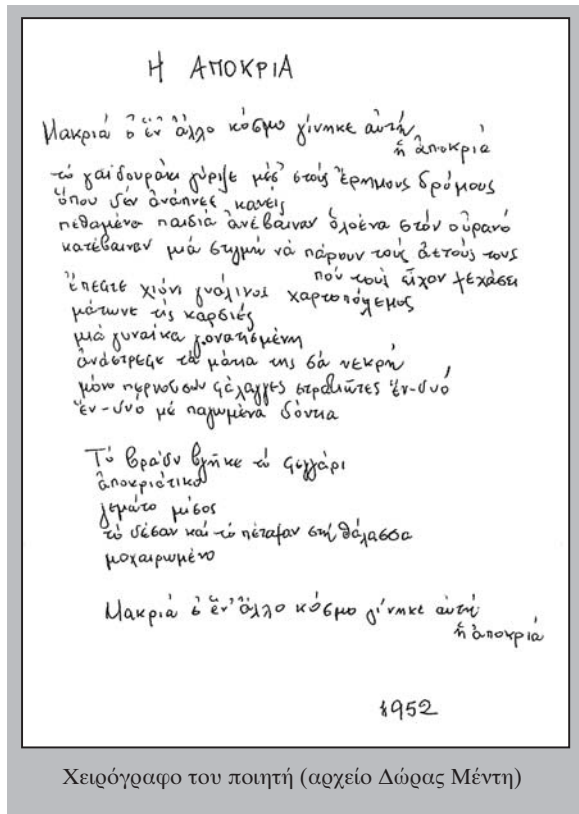 Η ΑΠΟΚΡΙΑ
Μακριά σ' ἕν' ἄλλο κόσμο γίνηκε αὐτή
ἡ ἀποκριά
τὸ γαϊδουράκι γύριζε μέσ' στοὺς ἔρημους δρόμους
ὅπου δὲν ἀνάπνεε κανείς
πεθαμένα παιδιά ἀνέβαιναν ὁλοένα στὸν οὐρανό
κατέβαιναν μιά στιγμή νὰ πάρουν τοὺς ἀετούς τους
ποὺ τοὺς εἶχαν ξεχάσει
ἔπεφτε χιόνι γυάλινος χαρτοπόλεμος
μάτωνε τὶς καρδιές
μιά γυναίκα γονατισμένη
ἀνάστρεφε τὰ μάτια της σὰ νεκρή
μόνο περνοῦσαν φάλαγγες στρατιῶτες ἕν-δυό
ἕν-δυό μὲ παγωμένα δόντια
Τὸ βράδυ βγῆκε τὸ φεγγάρι
ἀποκριάτικο
γεμάτο μίσος
τὸ δέσαν καὶ τὸ πέταξαν στὴ θάλασσα
μαχαιρωμένο
Μακριά σ' ἕν' ἄλλο κόσμο γίνηκε αὐτή
ἡ ἀποκριά
1952
Χειρόγραφο του ποιητή (αρχείο Δώρας Μέντη)